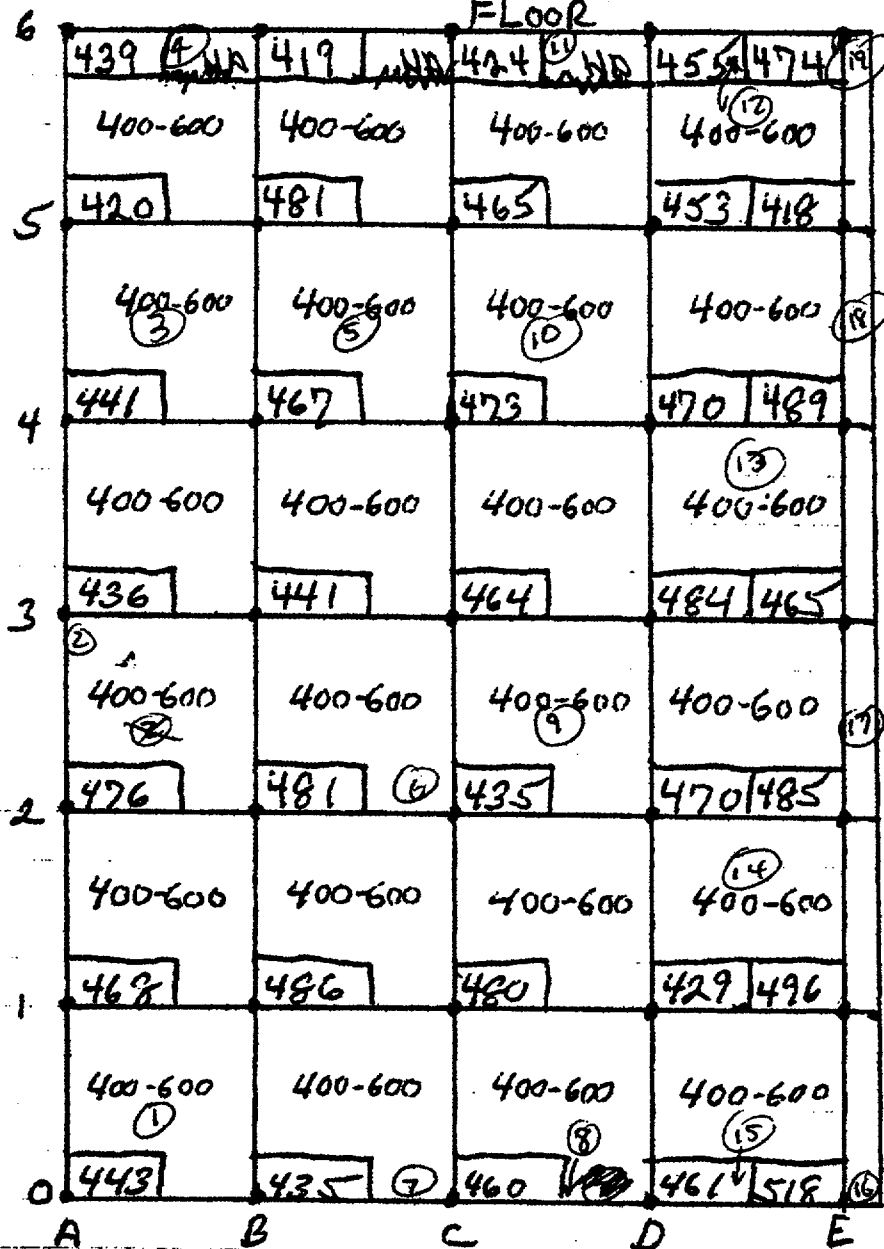 FLOOR
6
439 4 NA 419 NA 424 11 NA 455 474 19
400-600 400-600 400-600 12 400-600
5 420 481 465 453 418
400-600 400-600 400-600 400-600
3 5 10 18
4 441 467 473 470 489
13
400-600 400-600 400-600 400-600
3 436 441 464 484 465
2
400-600 400-600 400-600 400-600
2 9 17
2 476 481 6 435 470 485
14
400-600 400-600 400-600 400-600
1 468 486 480 429 496
400-600 400-600 400-600 400-600
1 8 15
0 443 435 7 460 461 518 16
A B C D E